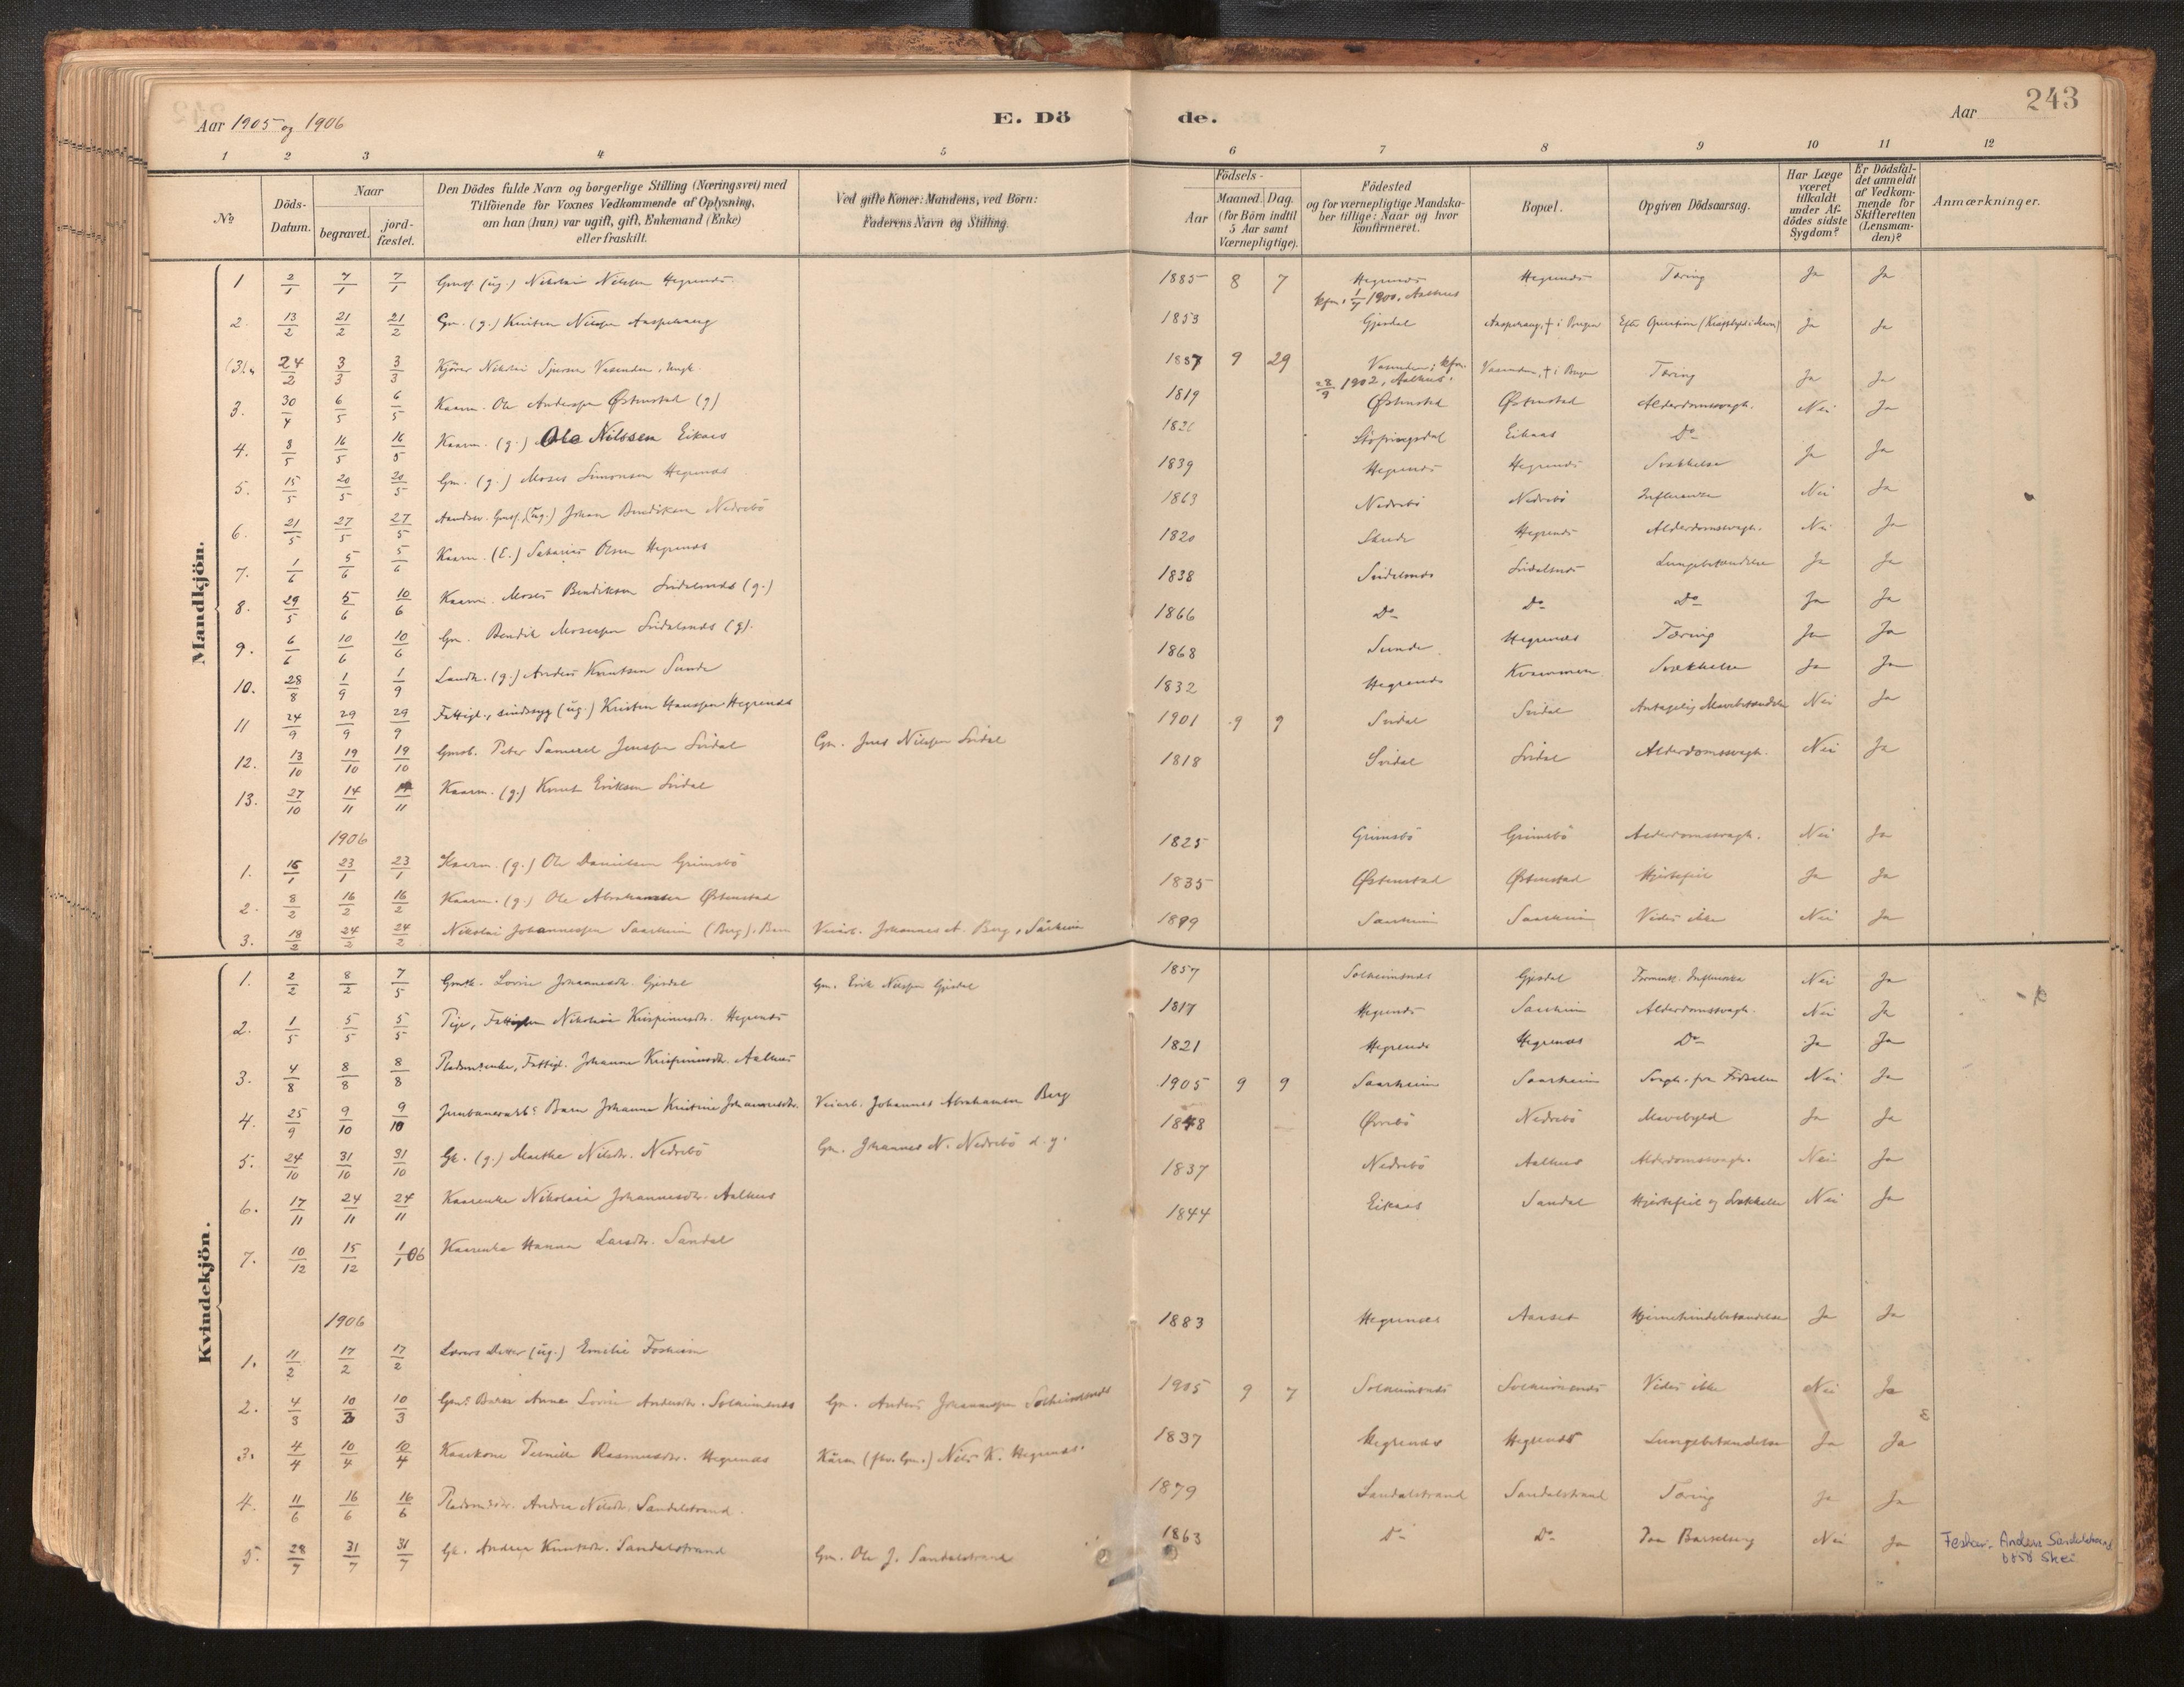 243
Aar 1905 og 1906
E. Dö
de.
Aar
1 2 3 4 5 6 7 8 9 10 11 12
No
Döds-
Datum.
Naar
begravet.
jord-
fæstet.
Den Dödes fulde Navn og borgerlige Stilling (Næringsvei) med
Tilföiende for Voxnes Vedkommende af Oplysning,
om han (hun) var ugift, gift, Enkemand (Enke)
eller fraskilt.
Ved gifte Koner: Mandens, ved Börn:
Faderens Navn og Stilling.
Födsels-
Aar
Maaned. Dag.
(for Börn indtil
5 Aar samt
Værnepligtige).
Födested
og for værnepligtige Mandska-
ber tillige: Naar og hvor
konfirmeret.
Bopæl.
Opgiven Dödsaarsag.
Har Læge
været
tilkaldt
under Af-
dödes sidste
Sygdom?
Er Dödsfal-
det anmeldt
af Vedkom-
mende for
Skifteretten
(Lensman-
den)?
Anmærkninger.
Mandkjön.
1 2/1 7/1 7/1 (ug.) Nikolai Nilssen Hegrenæs 1885 8 7 Hegrenæs Hegrenæs Tæring Ja Ja
1900, Aalhus
2. 13/2 21/2 21/2 Gm. (g.) Kristen Nilssen 1853 Gjesdal Efter Operation Ja Ja
(3). 24/2 3/3 3/3 Nikolai Sjursen Vasenden, Ungk. 1887 9 29 Vasenden, kfm. Vasenden, † i Bergen Tæring Ja Ja
28/9 1902, Aalhus.
3. 30/4 6/5 6/5 Kaarm. Ole Anderssen Østenstad (g) 1819 Østenstad Østenstad Alderdomssvagh. Nei Ja
4. 8/5 16/5 16/5 Kaarm. (g.) Ole Nilssen Eikaas Eikaas Do Ja Ja
5. 15/5 20/5 20/5 Gm. (g.) Moses Simonsen Hegrenæs 1839 Hegrenæs Hegrenæs Svækkelse Nei Ja
6. 21/5 27/5 27/5 (ug.) Johan Bendiksen Nedrebö 1863 Nedrebö Nedrebö Influenza Nei Ja
7. 1/6 5/6 5/6 Kaarm. (E.) Sakarias Olsen Hegrenæs 1820 Skrede Hegrenæs Alderdomssvagh. Ja Ja
8. 29/5 5/6 10/6 Kaarm. Moses Bendiksen Svidalsnæs (g.) 1838 Svidalsnæs Svidalsnæs Lungebetændelse Ja Ja
9. 6/6 10/6 10/6 Gm. Bendik Mosessen Svidalsnæs (g). 1866 Do Do Do Ja Ja
10. 28/8 1/9 1/9 Landh. (g.) Anders Knutsen Sunde 1868 Sunde Hegrenæs Tæring Ja Ja
11 24/9 29/9 29/9 Fattigl., sindssyg (ug.) Kristen Hanssen Hegrenæs 1832 Hegrenæs Kvammen Svækkelse Nei Ja
12. 13/10 19/10 19/10 Gmsb. Peter Samuel Jenssen Svidal Gm. Jens Nilssen Svidal 1901 9 9 Svidal Svidal Antagelig Mavebetændelse Nei Ja
13. 27/10 14/11 14/11 Kaarm. (g.) Knut Eriksen Svidal 1818 Svidal Svidal Alderdomssvagh.
1906
1. 16/1 23/1 23/1 Kaarm. (g.) Ole Danielsen Grimsbö 1825 Grimsbö Grimsbö Alderdomssvagh. Nei Ja
2. 8/2 16/2 16/2 Kaarm. (g.) Ole Abrahamsen Østenstad 1835 Østenstad Østenstad Hjertefeil Ja Ja
3. 18/2 24/2 24/2 Nikolai Johannessen Saarheim (Berg). Barn Veiarb. Johannes A. Berg, Sårheim 1899 Saarheim Saarheim Vides ikke Nei Ja
Kvindekjön.
1. 2/2 8/2 7/5 Gmk. Lovise Johannesdtr. Gjesdal Gm. Erik Nilssen Gjesdal 1857 Solheimsnæs Gjesdal Influenza Nei Ja
2. 1/5 5/5 5/5 Pige, Fattiglem Nikolaia Krispinusdtr. Hegrenæs 1817 Hegrenæs Saarheim Alderdomssvagh. Nei Ja
3. 4/8 8/8 8/8 Pladsm.enke, Fattigl. Johanna Krispinusdtr. Aalhus 1821 Hegrenæs Hegrenæs Do Ja Ja
4. 25/9 9/10 9/10 Jernbanearb.s Barn Johanna Kristine Johannesdtr. Veiarb. Johannes Abrahamsen Berg 1905 9 9 Saarheim Saarheim Svagh. fra Födselen Nei Ja
5. 24/10 31/10 31/10 Gk. (g.) Marthe Nilsdtr. Nedrebö Gm. Johannes N. Nedrebö d. y. 1848 Øvrebö Nedrebö Mavebyld Ja Ja
6. 17/11 24/11 24/11 Kaarenke Nikolaia Johannesdtr. Aalhus 1837 Nedrebö Aalhus Alderdomssvagh. Nei Ja
7. 10/12 15/12 1/1 06 Kaarenke Hanna Larsdtr. Sandal 1844 Eikaas Sandal Hjertefeil og Svækkelse Nei Ja
1906
1. 11/2 17/2 17/2 Lærers Datter (ug.) Emilie Fosheim 1883 Hegrenæs Aarset Hjernehindebetændelse Ja Ja
2. 4/3 10/3 10/3 Gms Barn Anna Lovise Andersdtr. Solheimsnæs Gm. Anders Johannessen Solheimsnæs 1905 9 7 Solheimsnæs Solheimsnæs Vides ikke Nei Ja
3. 4/4 10/4 10/4 Kaarkone Pernille Rasmusdtr. Hegrenæs Kårm (fhv. Gm.) Nils K. Hegrenæs 1837 Hegrenæs Hegrenæs Lungebetændelse Ja Ja
4. 11/6 16/6 16/6 Pladsmdtr. Andrea Nilsdtr. Sandalstrand 1879 Sandalstrand Sandalstrand Tæring Ja Ja
5. 28/7 31/7 31/7 Gk. Andrea Knutsdtr. Sandalstrand Gm. Ole J. Sandalstrand 1863 Do Do Paa Barselseng Nei Ja Anders Sandalstrand
Skei